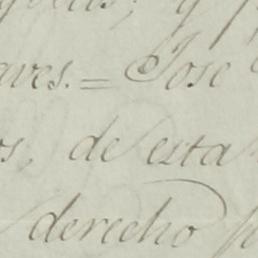 aves. = José
os, de esta
derecho